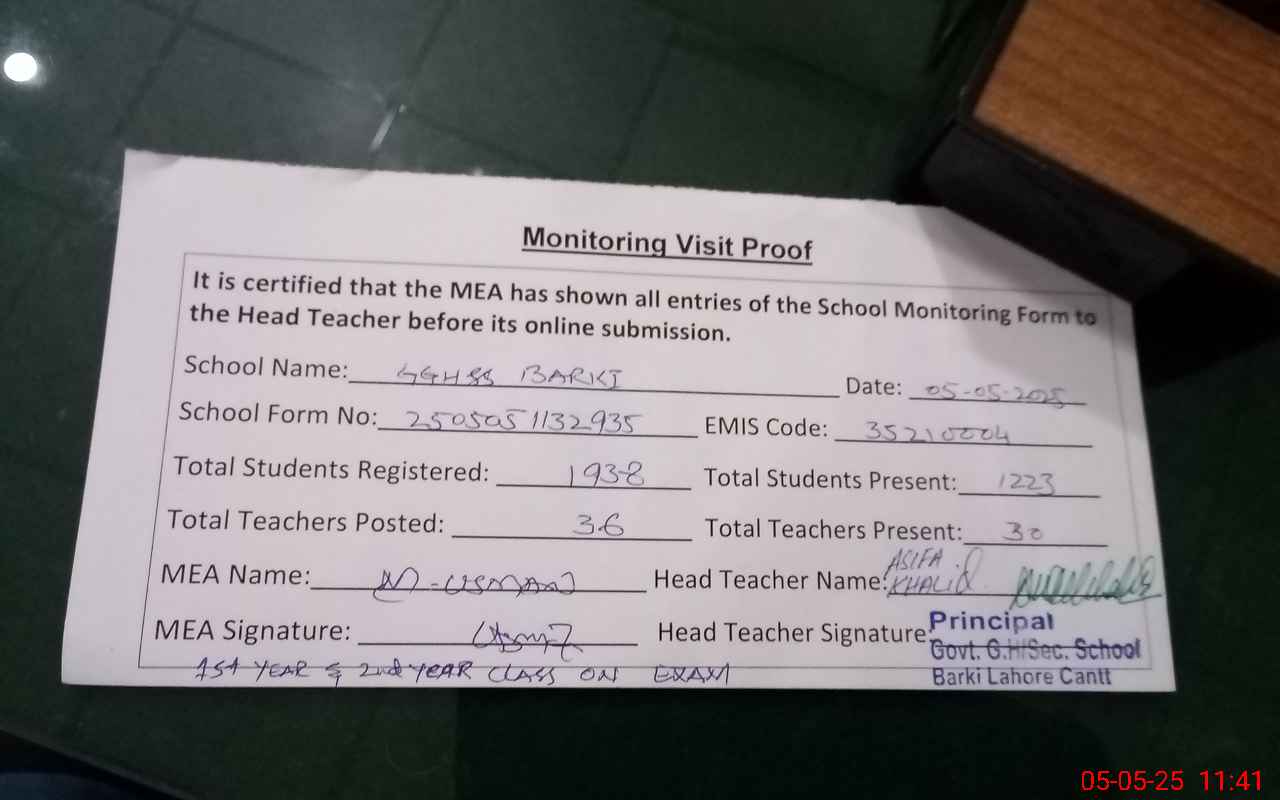 Monitoring Visit Proof
It is certified that the MEA has shown all entries of the School Monitoring Form to
the Head Teacher before its online submission.
School Name: GGHSS BARKI Date: 05-05-2025
School Form No: 2505051132935 EMIS Code: 35210004
Total Students Registered: 1938 Total Students Present: 1223
Total Teachers Posted: 36 Total Teachers Present: 30
MEA Name: M-USMAN Head Teacher Name: ASIFA KHALIQ
MEA Signature: Head Teacher Signature:
Principal
Govt. G.H/Sec. School
Barki Lahore Cantt
1st YEAR & 2nd YEAR CLASS ON EXAM
05-05-25 11:41